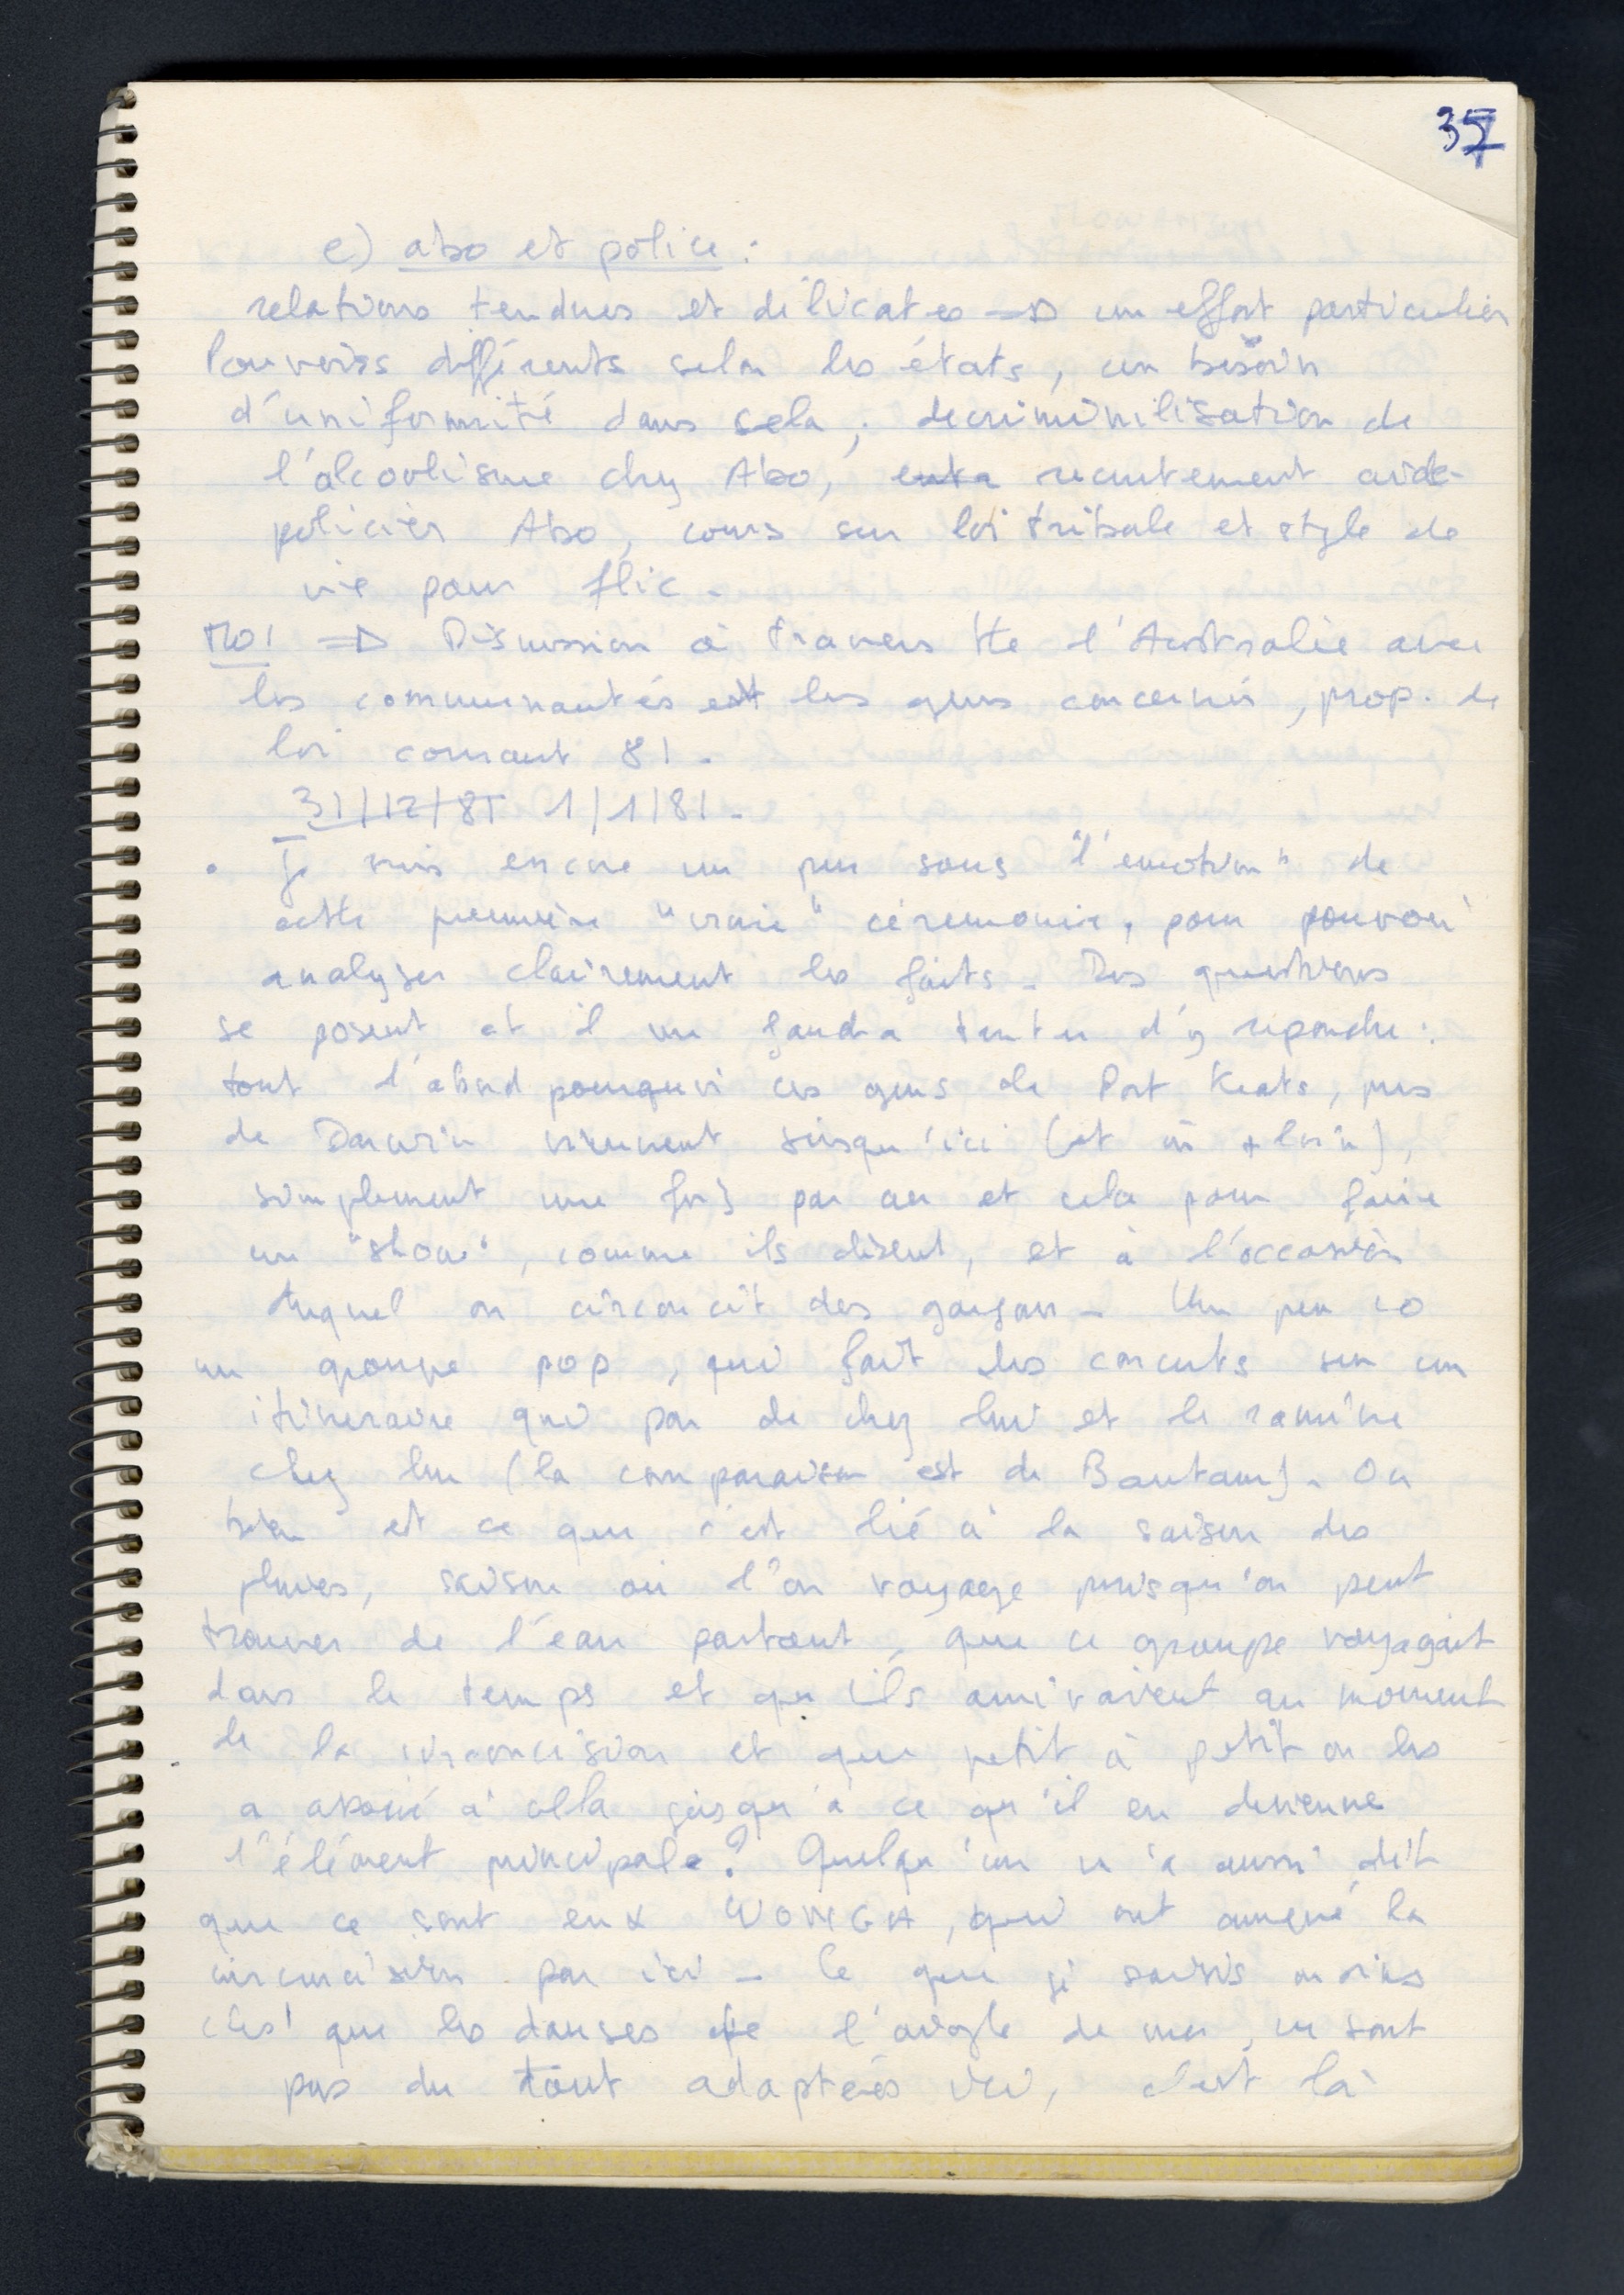 37
e) abo et police :
relations tendues et délicates → un effort particulier
Pouvoirs différents selon les états, un besoin
d'uniformité dans cela ; decriminilisation de
l'alcoolisme chez Abo, recrutement aide-
policier Abo, cours sur loi tribale et style de
vie pour flic -
⇒ Discussion à travers tte l'Australie avec
les communautés et les gens concernés, prop. de
loi courant 81 -
31/12/81 1/1/81 -
• Je suis encore un peu sous "l'émotion" de
cette première "vraie" céremonie, pour pouvoir
analyser clairement les faits - Des questions
se posent et il me faudra tenter d'y répondre :
tout d'abord pourquoi ces gens de Port Keats, près
de Darwin viennent jusqu'ici (et m̂ + loin),
simplement une fois par an et cela pour faire
un "show", comme ils disent, et à l'occasion
duquel on circoncit des garçons - Un peu co
un groupe pop, qui fait des concerts sur un
itineraire qui par de chez lui et le ramène
chez lui (la comparaison est de Bantam) - Ou
bien est ce que c'est lié à la saison des
pluies, saison où l'on voyage puisqu'on peut
trouver de l'eau partout, que ce groupe voyagait
dans le temps et qu'ils arrivaient au moment
de la circoncision et que petit à petit on les
a associé à cella jusqu'à ce qu'il en devienne
l'élément principale ? Quelqu'un m'a aussi dit
que ce sont eux WONGA, qui ont amené la
circoncision par ici - Ce que je saisis moins
c'est que les danses de l'aigle de mer, ne sont
pas du tout adaptées ici, c'est là